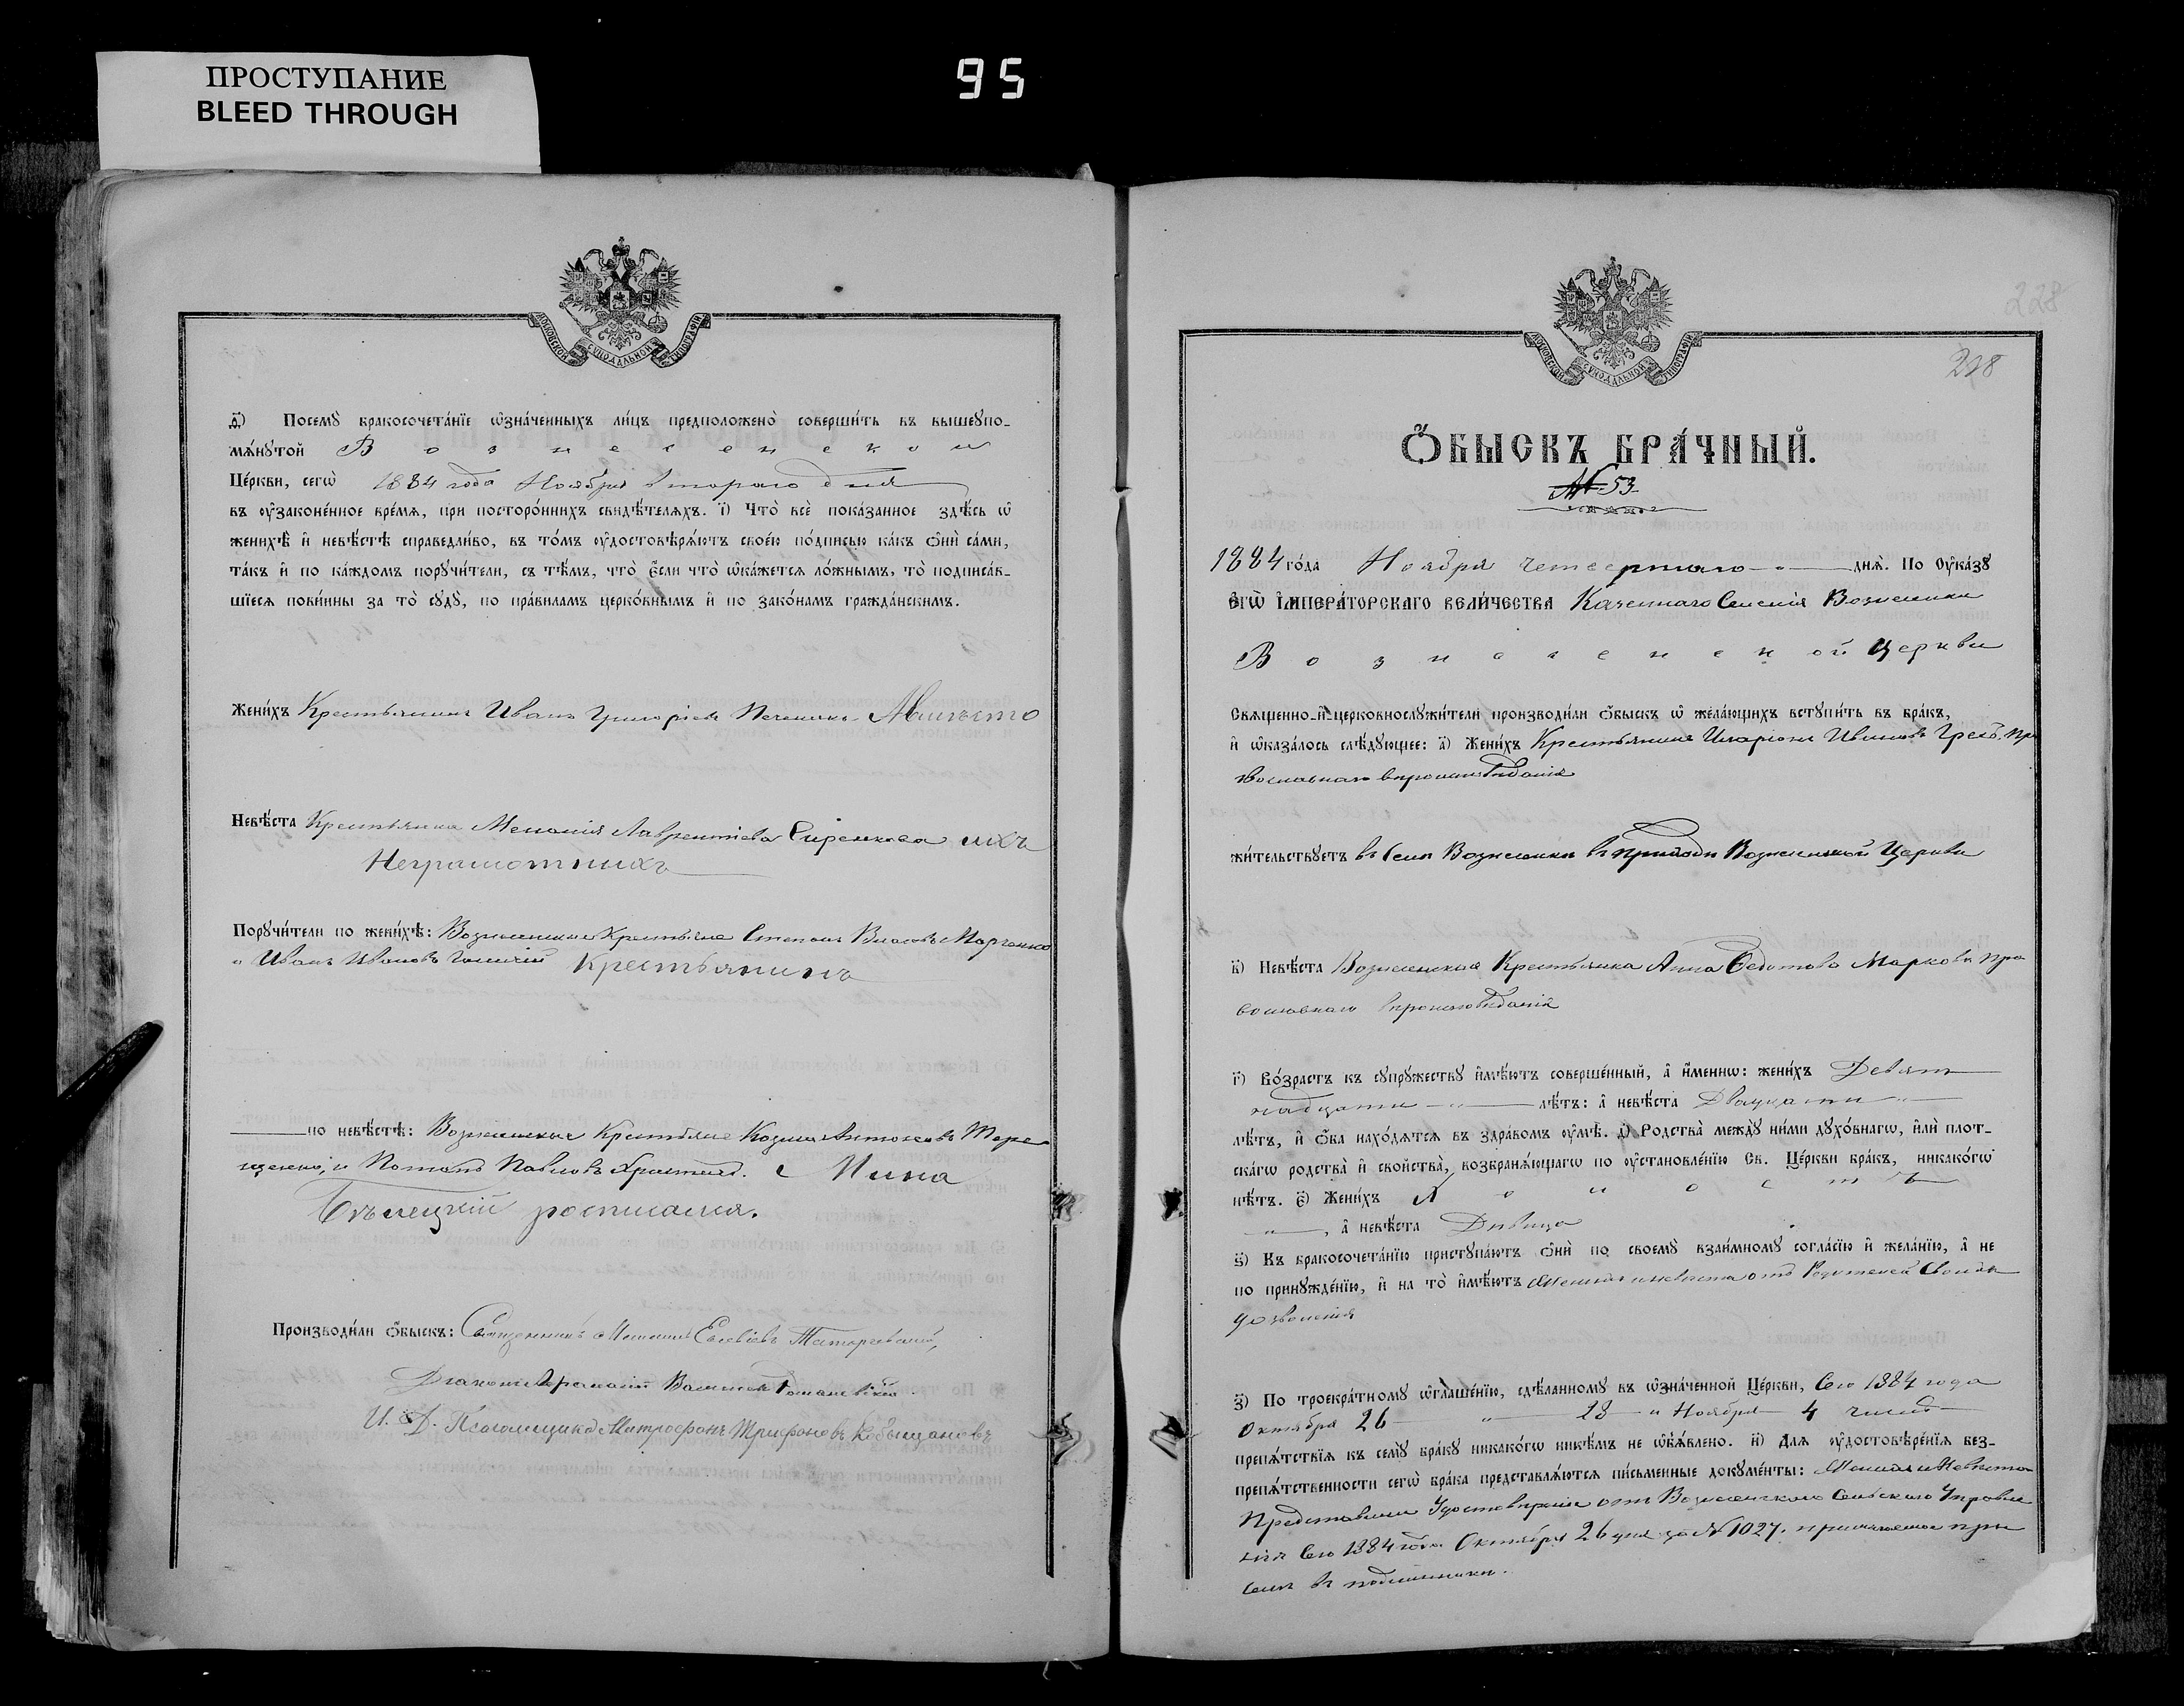 ПРОСТУПАНИЕ
BLEED THROUGH
95
МОСКОВСКОЙ СѴНОДАЛЬНОЙ ТИПОГРАФІИ
Посемꙋ̀ бракосочета́нїе ѡ҆зна́ченныхъ ли́цъ предположено̀ соверши́ть въ вышеꙋпо-
мѧ́нꙋтой Вознесенской
Це́ркви, сегѡ̀ 1884 года Ноября втораго дня
въ ᲂу҆законе́нное вре́мѧ, при посторо́ннихъ свидѣ́телѧхъ. і҃) Что̀ всѐ пока́занное здѣ́сь ѡ҆
женихѣ̀ и҆ невѣ́стѣ справедли́во, въ то́мъ ᲂу҆достовѣрѧ́ютъ свое́ю по́дписью ка́къ ѻ҆нѝ са́ми,
та́къ и҆ по ка́ждомъ порꙋчи́тели, съ тѣ́мъ, что̀ є҆́сли что̀ ѡ҆ка́жетсѧ ло́жнымъ, то̀ подписа́в-
шїесѧ пови́нны за то̀ сꙋдꙋ̀, по пра́виламъ церко́внымъ и҆ по зако́намъ гражда́нскимъ.
Жени́хъ Крестьянинъ Иванъ Григоріевъ
Невѣ́ста Крестьянка Меланія Лаврентіева ихъ
Неграмотныхъ
Порꙋчи́тели по женихѣ̀: Вознесенскіе Крестьяне Степанъ Власовъ Марченко
и Иванъ Ивановъ Крестьянинъ
по невѣ́стѣ: Вознесенскіе Крестьяне Козма Антоновъ Тере-
щенко, и Потапъ Павловъ
росписался.
Производи́ли ѻ҆́быскъ: Священникъ Евсевіевъ
Діаконъ
И. Д. Псаломщика Митрофанъ Трифоновъ Кобыщановъ
228
218
МОСКОВСКОЙ СѴНОДАЛЬНОЙ ТИПОГРАФІИ
Ѻ҆́БЫСКЪ БРА́ЧНЫЙ.
№ 53
1884 го́да Ноября четвертаго днѧ̀. По ᲂу҆ка́зꙋ
є҆гѡ̀ і҆мпера́торскагѡ вели́чества Казеннаго Селенія Вознесенки
Вознесенской Церкви
Свѧще́нно-и҆-церковнослꙋжи́тели производи́ли ѻ҆́быскъ ѡ҆ жела́ющихъ встꙋпи́ть въ бра́къ,
и҆ ѡ҆каза́лось слѣ́дꙋющее: а҃) Жени́хъ Крестьянинъ Иларіонъ Ивановъ Пра
вославнаго вѣроисповѣданія
жи́тельствꙋетъ въ Селѣ Вознесенки въ приходѣ Вознесенской Церкви
в҃) Невѣ́ста Вознесенская Крестьянка Анна Федотова Маркова Пра
вославнаго вѣроисповѣданія
г҃) Во́зрастъ къ сꙋпрꙋ́жествꙋ и҆мѣ́ютъ соверше́нный, а҆ и҆́меннѡ: жени́хъ Девят
надцати лѣ́тъ: а҆ невѣ́ста Двадцати
лѣ́тъ, и҆ ѻ҆́ба нахо́дѧтсѧ въ здра́вомъ ᲂу҆мѣ̀. д҃) Родства̀ междꙋ̀ ни́ми дꙋхо́внагѡ, и҆лѝ пло́т-
скагѡ родства̀ и҆ сво́йства, возбранѧ́ющагѡ по ᲂу҆становле́нїю Св. Це́ркви бра́къ, никако́гѡ
нѣ́тъ. є҃) Жени́хъ Холостъ
, а҆ невѣ́ста Дѣвица
ѕ҃) Къ бракосочета́нїю пристꙋпа́ютъ ѻ҆нѝ по своемꙋ̀ взаи́мномꙋ согла́сїю и҆ жела́нїю, а҆ не
по принꙋжде́нїю, и҆ на то̀ и҆мѣ́ютъ Женихъ и невѣста отъ Родителей Своихъ
дозволенія
з҃) По троекра́тномꙋ ѡ҆глаше́нїю, сдѣ́ланномꙋ въ ѡ҆зна́ченной Це́ркви, Сего 1884 года
Октября 26 28 и Ноября 4 числъ
препѧ́тствїѧ къ семꙋ̀ бра́кꙋ никако́гѡ никѣ́мъ не ѡ҆б̾ѧ́влено. и҃) Длѧ ᲂу҆достовѣре́нїѧ без-
препѧ́тственности сегѡ̀ бра́ка представлѧ́ютсѧ пи́сьменные докꙋме́нты: Женихъ и Невѣста
Представили Удостовѣреніе отъ Вознесенскаго Сельскаго Управле
нія Сего 1884 года Октября 26 дня за № 1027. прилагаемое при
семъ въ подлинникѣ.